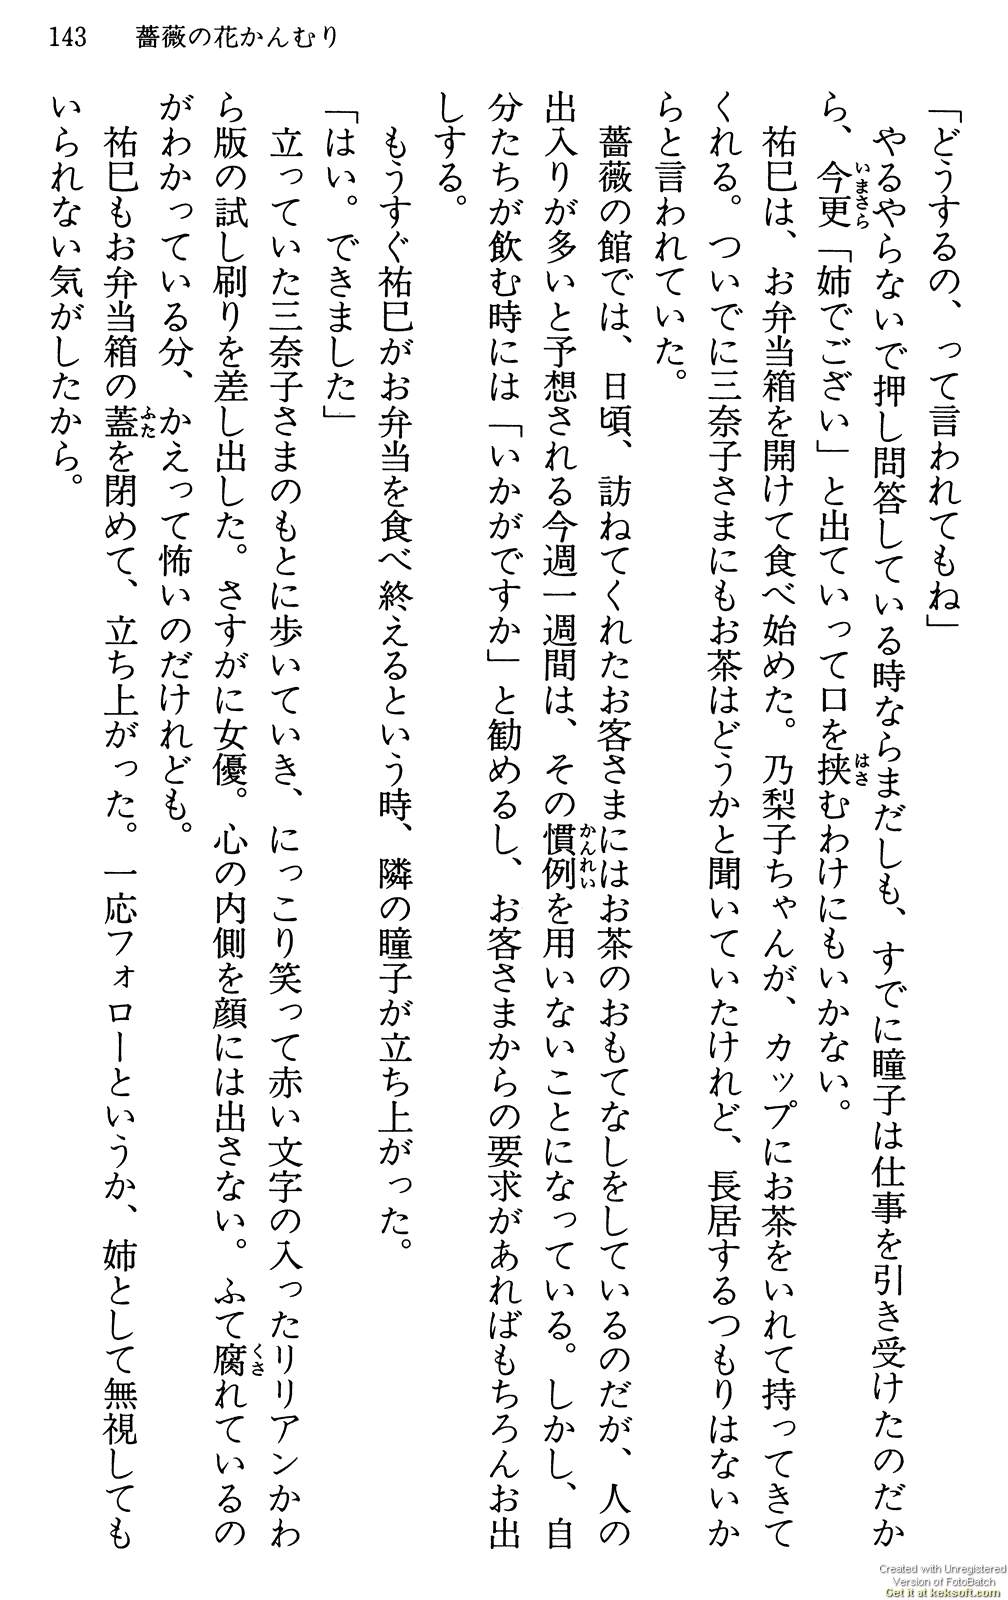 143　薔薇の花かんむり
「どうするの、って言われてもね」
　やるやらないで押し問答している時ならまだしも、すでに瞳子は仕事を引き受けたのだか
ら、今更「姉でござい」と出ていって口を挟むわけにもいかない。
　祐巳は、お弁当箱を開けて食べ始めた。乃梨子ちゃんが、カップにお茶をいれて持ってきて
くれる。ついでに三奈子さまにもお茶はどうかと聞いていたけれど、長居するつもりはないか
らと言われていた。
　薔薇の館では、日頃、訪ねてくれたお客さまにはお茶のおもてなしをしているのだが、人の
出入りが多いと予想される今週一週間は、その慣例を用いないことになっている。しかし、自
分たちが飲む時には「いかがですか」と勧めるし、お客さまからの要求があればもちろんお出
しする。
　もうすぐ祐巳がお弁当を食べ終えるという時、隣の瞳子が立ち上がった。
「はい。できました」
　立っていた三奈子さまのもとに歩いていき、にっこり笑って赤い文字の入ったリリアンかわ
ら版の試し刷りを差し出した。さすがに女優。心の内側を顔には出さない。ふて腐れているの
がわかっている分、かえって怖いのだけれども。
　祐巳もお弁当箱の蓋を閉めて、立ち上がった。一応フォローというか、姉として無視しても
いられない気がしたから。
いまさら
はさ
かんれい
くさ
ふた
Created with Unregistered
Version of FotoBatch
Get it at keksoft.com